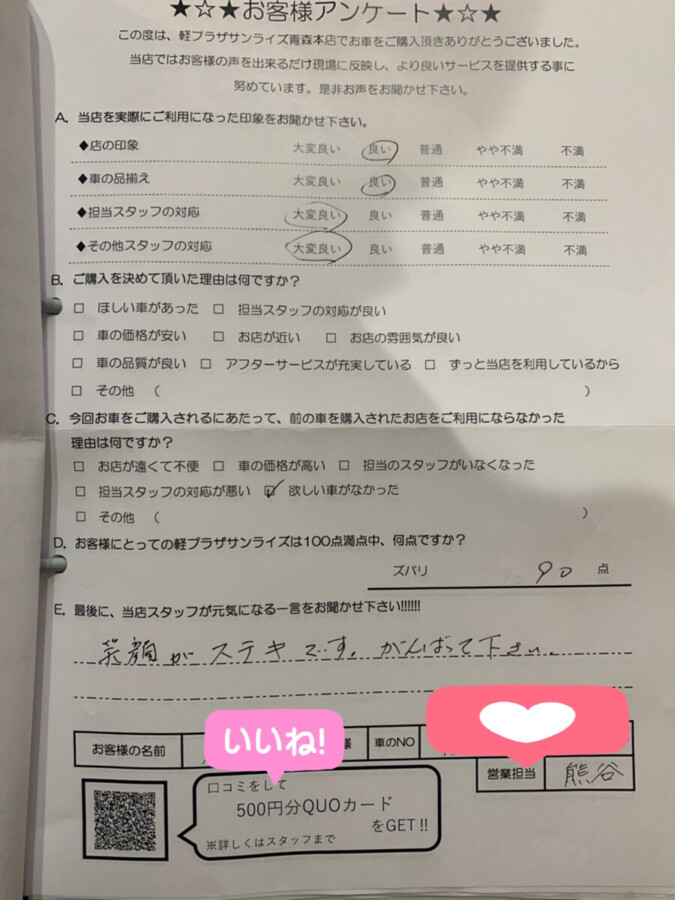 ★☆★お客様アンケート★☆★
この度は、軽プラザサンライズ青森本店でお車をご購入頂きありがとうございました。
当店ではお客様の声を出来るだけ現場に反映し、より良いサービスを提供する事に
努めています。是非お声をお聞かせ下さい。
A. 当店を実際にご利用になった印象をお聞かせ下さい。
◆店の印象 大変良い 良い 普通 やや不満 不満
◆車の品揃え 大変良い 良い 普通 やや不満 不満
◆担当スタッフの対応 大変良い 良い 普通 やや不満 不満
◆その他スタッフの対応 大変良い 良い 普通 やや不満 不満
B. ご購入を決めて頂いた理由は何ですか?
□ ほしい車があった □ 担当スタッフの対応が良い
□ 車の価格が安い □ お店が近い □ お店の雰囲気が良い
□ 車の品質が良い □ アフターサービスが充実している □ ずっと当店を利用しているから
□ その他 ( )
C. 今回お車をご購入されるにあたって、前の車を購入されたお店をご利用にならなかった
理由は何ですか?
□ お店が遠くて不便 □ 車の価格が高い □ 担当のスタッフがいなくなった
□ 担当スタッフの対応が悪い ☑ 欲しい車がなかった
□ その他 ( )
D. お客様にとっての軽プラザサンライズは100点満点中、何点ですか?
ズバリ 90 点
E. 最後に、当店スタッフが元気になる一言をお聞かせ下さい!!!!!!
笑顔がステキです。がんばって下さい。
お客様の名前 いいね! 様 車のNO
営業担当 熊谷
口コミをして
500円分QUOカード
をGET!!
※詳しくはスタッフまで